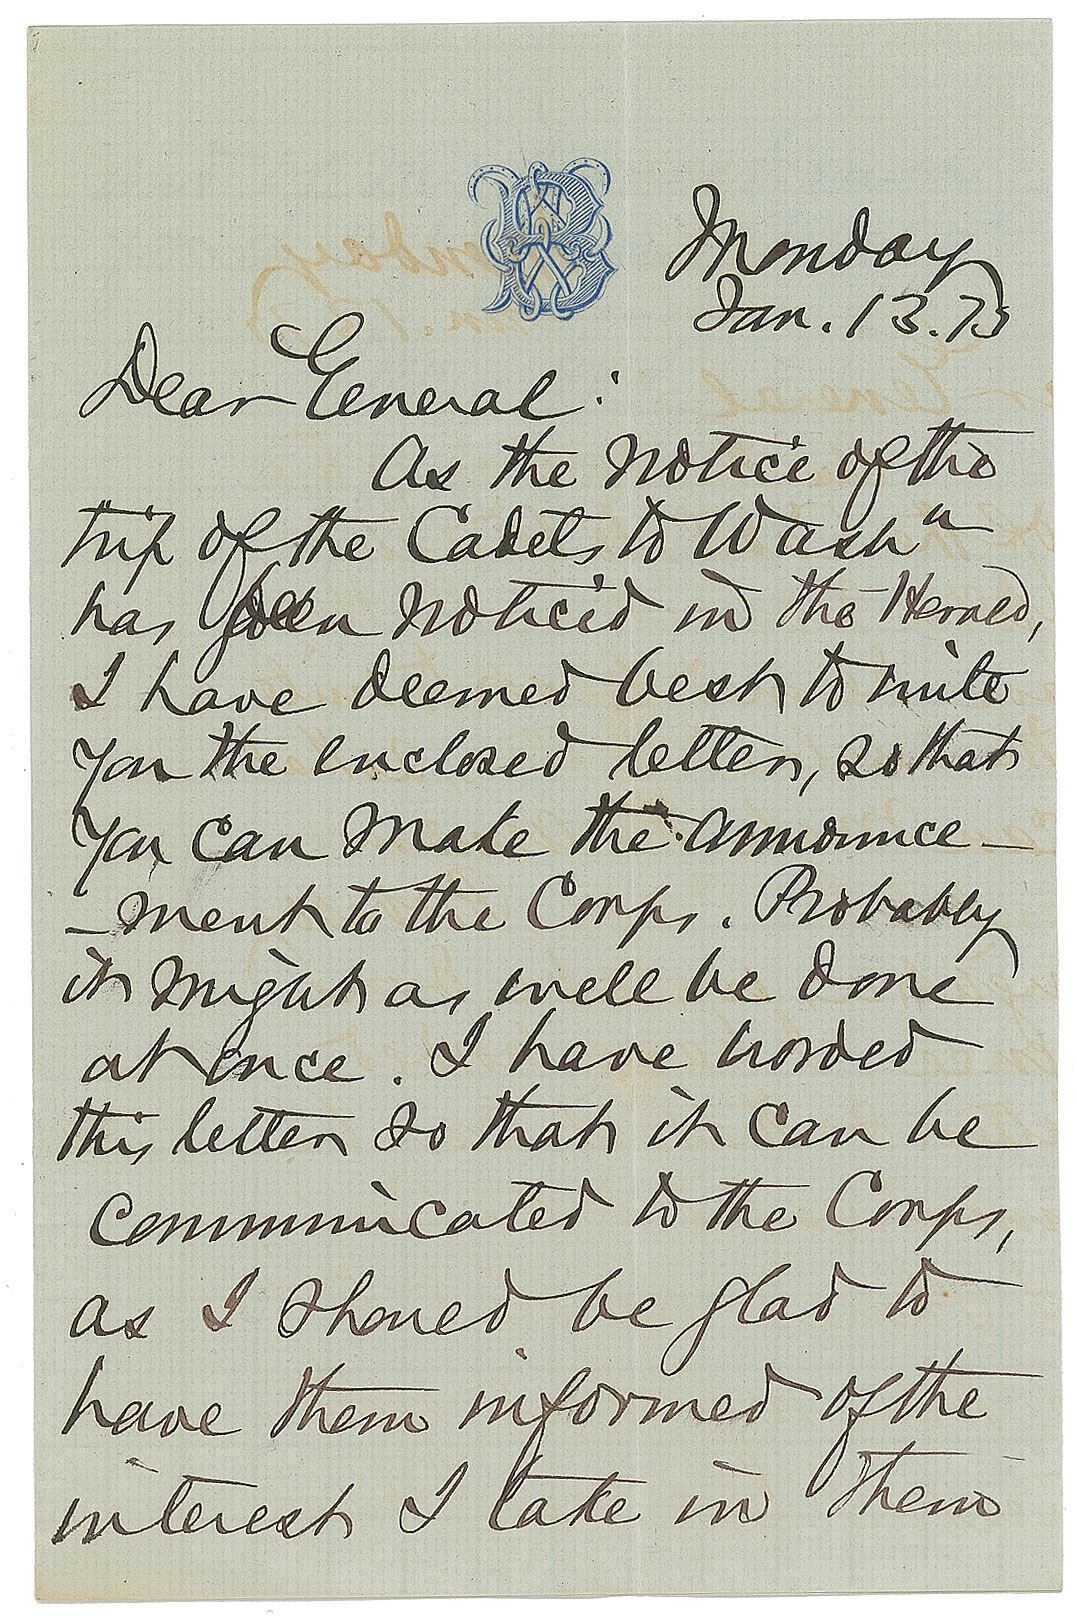 Monday
Jan. 13. 73
Dear General:
As the notice of the
trip of the Cadets to Washn
has been noticed in the Herald,
I have deemed best to write
you the enclosed letter, so that
you can make the announce-
-ment to the Corps. Probably
it might as well be done
at once. I have worded
this letter so that it can be
communicated to the Corps,
as I should be glad to
have them informed of the
interest I take in them